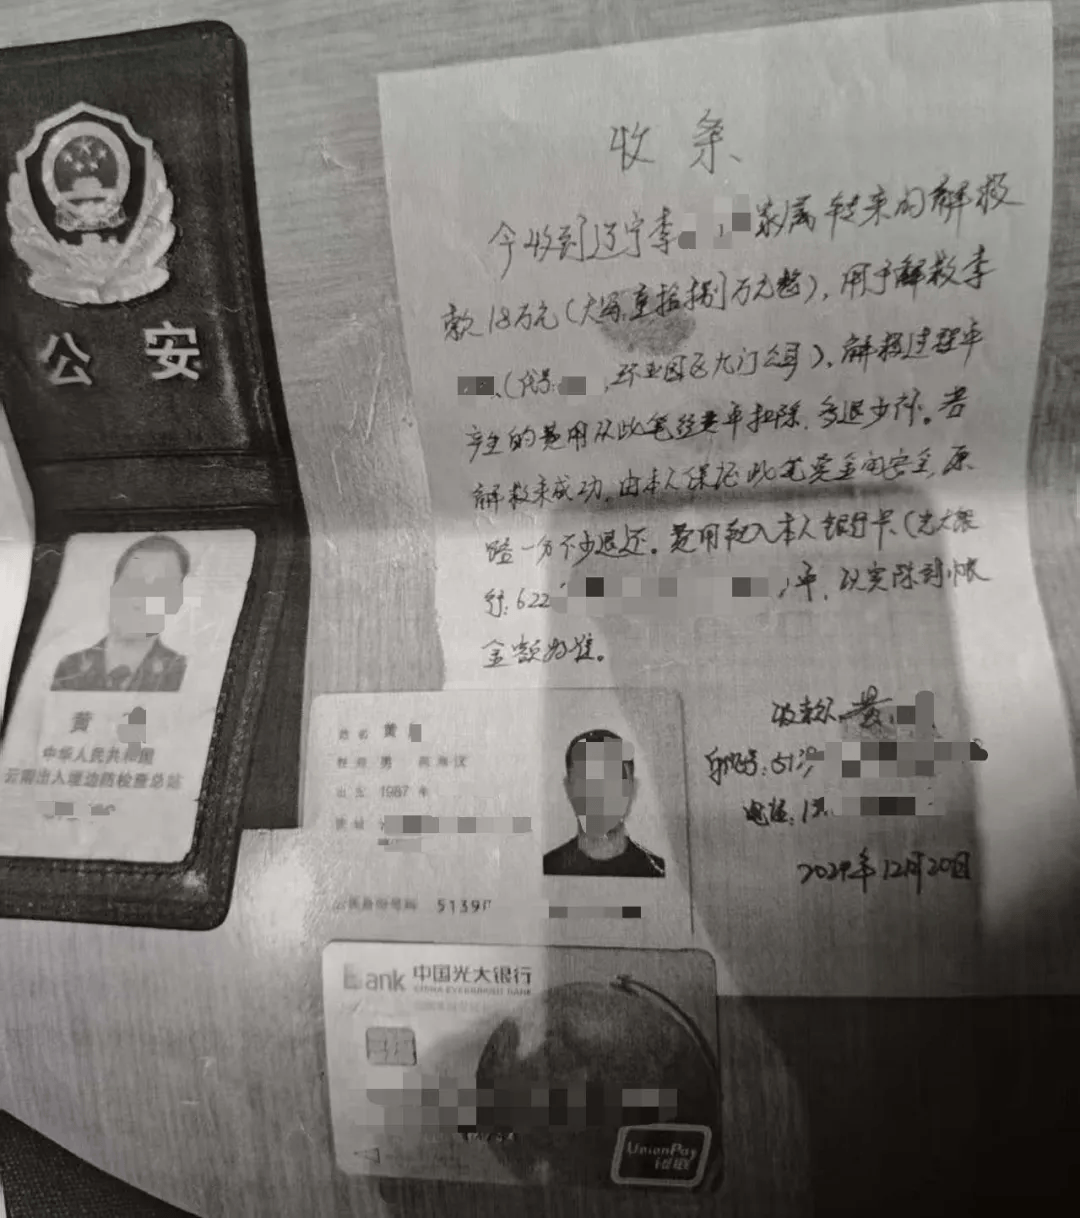 公安
黄
中华人民共和国
云南出入境边防检查总站
收条
今收到辽宁李 家属转来的解救
款18万元(大写:壹拾捌万元整),用于解救李
(代号: , 园区九门公司),解救过程中
产生的费用从此笔经费中扣除,多退少补。若
解救未成功,由本人保证此笔资金的安全,原
路一分不少退还。费用转入本人银行卡(光大银
行:622 )中,以实际到帐
金额为准。
收款人:黄
身份证号:51
电话:1
2024年12月20日
姓名 黄
性别 男 民族 汉
出生 1987 年
住址
公民身份号码 5139
Bank 中国光大银行
CHINA EVERBRIGHT BANK
UnionPay
银联